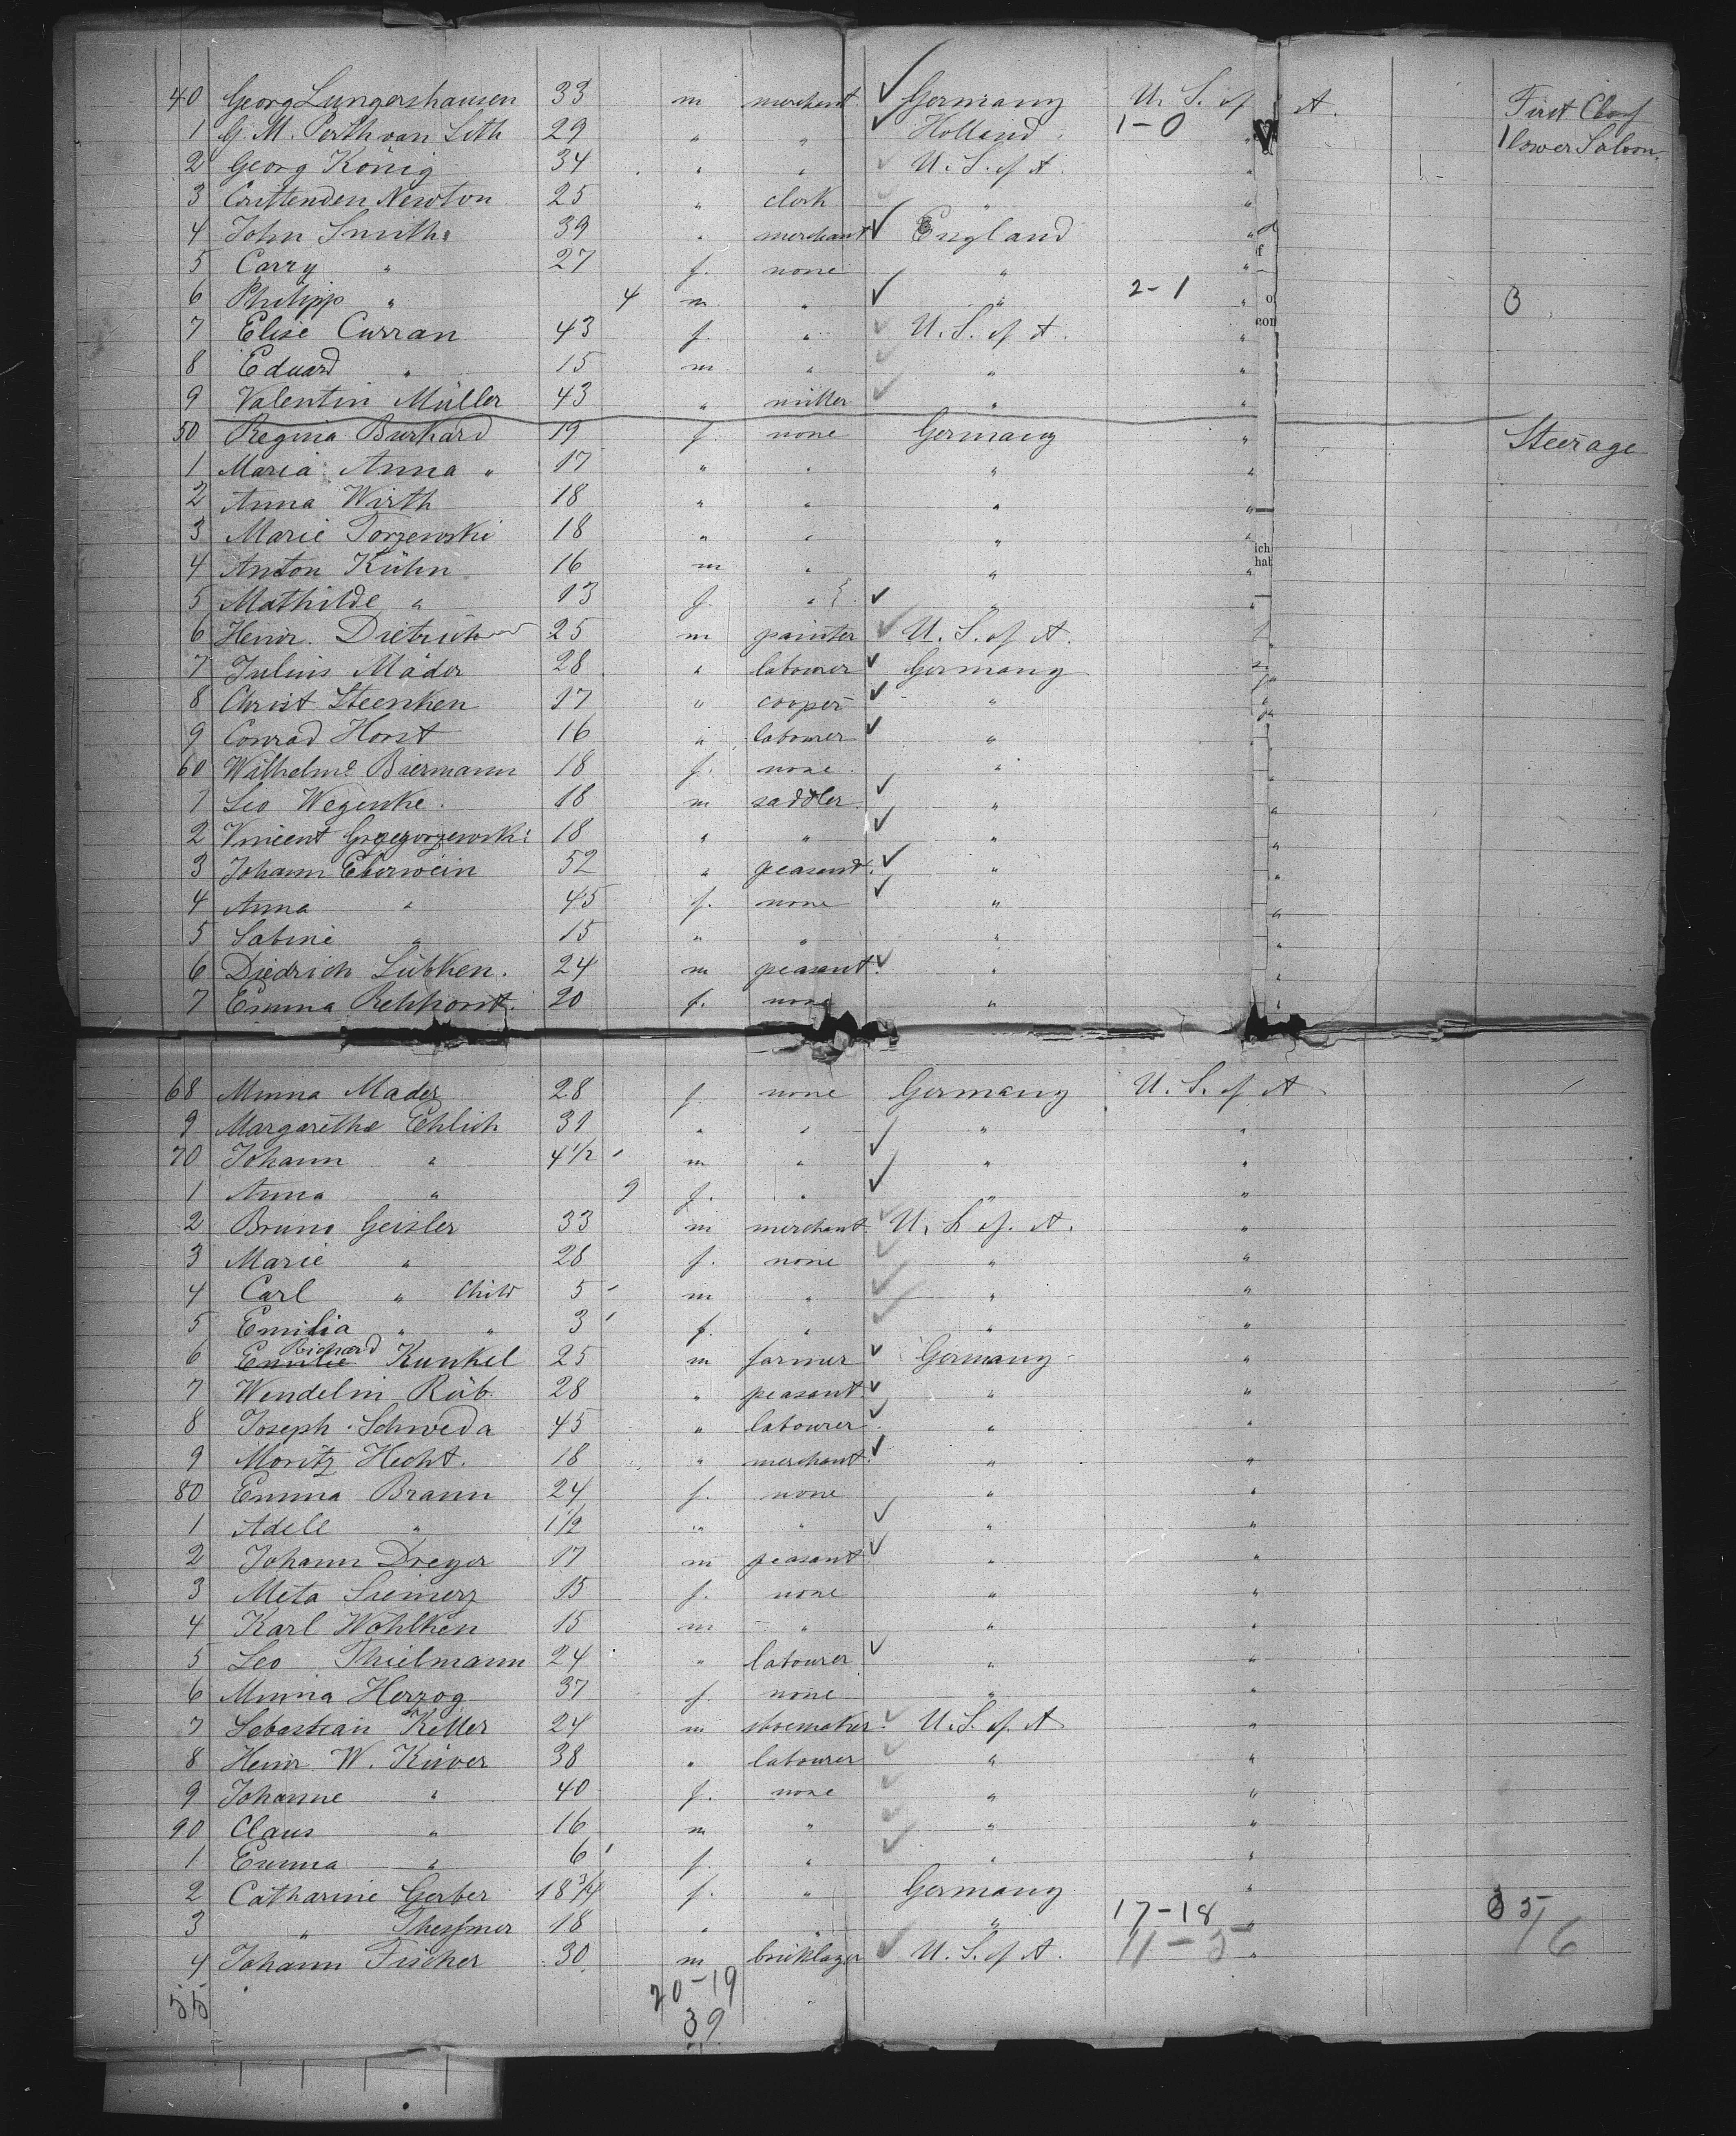 40 Georg Lungershausen 33 m merchant Germany U. S. of A. First Class
1 G. M. Perth van Lith 29 " " Holland 1-0 " lower Saloon.
2 Georg König 34 " " U. S. of A. "
3 Crittenden Newton 25 " clerk " "
4 John Smith 39 " merchant England "
5 Carry " 27 f. none " "
6 Philipp " 4 m " " 2-1 "
7 Elise Curran 43 f. " U. S. of A. "
8 Eduard " 15 m " " "
9 Valentin Müller 43 " miller " "
50 Regina Burkard 19 f. none Germany " Steerage
1 Maria Anna " 17 " " " "
2 Anna Wirth 18 " " " "
3 Marie Torzewski 18 " " " "
4 Anton Kühn 16 m " " "
5 Mathilde " 13 f. " " "
6 Heinr. Dietrich 25 m painter U. S. of A. "
7 Julius Mäder 28 " labourer Germany "
8 Christ Steenken 17 " cooper " "
9 Conrad Horst 16 " labourer " "
60 Wilhelme Biermann 18 f. none " "
1 Leo Wegenke. 18 m saddler " "
2 Vincent Grzegorzewski 18 " " " "
3 Johann Eberwein 52 " peasant. " "
4 Anna " 45 f. none " "
5 Sabine " 15 " " " "
6 Diedrich Lübken. 24 m peasant. " "
7 Emma Rehhorst. 20 f. none " "
68 Minna Mader 28 f. none Germany U. S. of A
9 Margarethe Ehlich 31 " " " "
70 Johann " 4 1/2 m " " "
1 Anna " 9 f. " " "
2 Bruno Geisler 33 m merchant U. S. of A. "
3 Marie " 28 f. none " "
4 Carl " Child 5 m " " "
5 Emilia " " 3 f. " " "
Richard
6 Emilie Kunkel 25 m farmer Germany "
7 Wendelin Rüb. 28 " peasant. " "
8 Joseph Schweda 45 " labourer " "
9 Moritz Hecht. 18 " merchant. " "
80 Emma Braun 24 f. none " "
1 Adele " 1 1/2 " " " "
2 Johann Dreyer 17 m peasant " "
3 Meta Siemerz 15 f. none " "
4 Karl Wohlken 15 m " " "
5 Leo Thielmann 24 " labourer " "
6 Minna Herzog 37 f. none " "
7 Sebastian Keller 24 m shoemaker. U. S. of A "
8 Heinr. W. Küver 38 " labourer " "
9 Johanne " 40 f. none " "
90 Claus " 16 m " " "
1 Emma " 6 f. " " "
2 Catharine Gerber 18 3/4 f. " Germany "
3 " 18 " " " 17-18 "
4 Johann Fischer 30 m bricklayer U. S. of A. 11-5 " 16
55 20-19
39